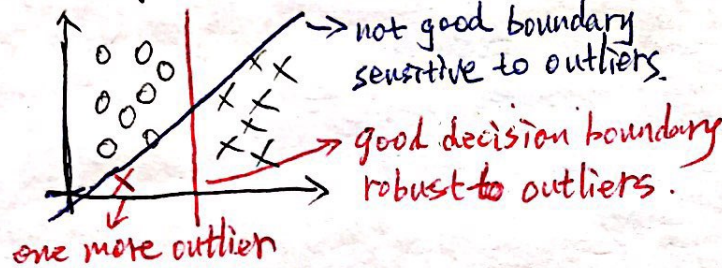 not good boundary
sensitive to outliers.
good decision boundary
robust to outliers.
one more outlier